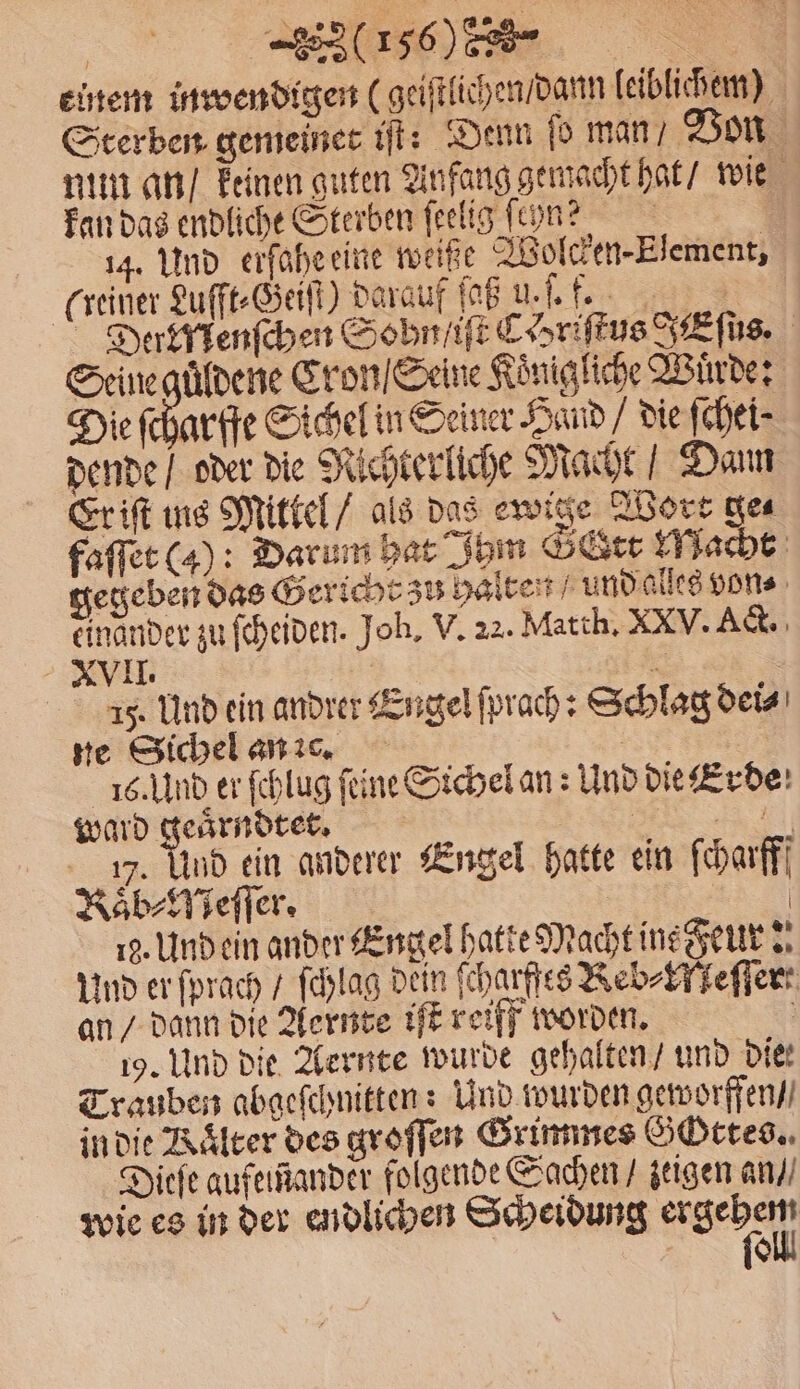 (156)
einem inwendigen (geiſtlichen/dann leiblichem)
Sterben gemeinet iſt: Denn ſo man/ Von
nun an/ keinen guten Anfang gemacht hat/ wie
kan das endliche Sterben ſeelig ſeyn?
14. Und erſahe eine weiße Wolcken-Element,
(reiner Lufft-Geiſt) darauf ſaß u. ſ. f.
Der Menſchen Sohn/iſt CHriſtus JEſus.
Seine guͤldene Cron/Seine Koͤnigliche Wuͤrde:
Die ſcharffe Sichel in Seiner Hand/ die ſchei-
dende/ oder die Richterliche Macht/ Dann
Er iſt ins Mittel/ als das ewige Wort ge-
faſſet (4): Darum hat Ihm GOtt Macht
gegeben das Gericht zu halten/ und alles von-
einander zu ſcheiden. Joh. V. 22. Matth. XXV. Act.
XVII.
15. Und ein andrer Engel ſprach: Schlag dei-
ne Sichel an ꝛc.
16. Und er ſchlug ſeine Sichel an: Und die Erde
ward geaͤrndtet.
17. Und ein anderer Engel hatte ein ſcharff
Raͤb-Meſſer.
18. Und ein ander Engel hatte Macht ins Feur:
Und er ſprach/ ſchlag dein ſcharffes Reb-Meſſer
an/ dann die Aernte iſt reiff worden.
19. Und die Aernte wurde gehalten/ und die
Trauben abgeſchnitten: Und wurden geworffen/
in die Kaͤlter des groſſen Grimmes GOttes.
Dieſe aufeiñander folgende Sachen/ zeigen an/
wie es in der endlichen Scheidung ergehen
ſoll